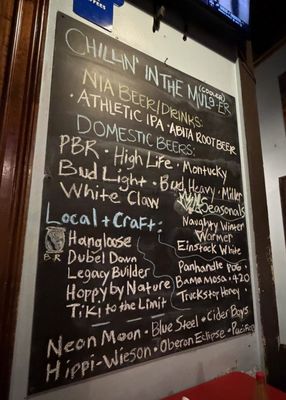 COFFEES
CHILLIN' IN THE MULE'S ER
(COOLER)
N/A BEER/DRINKS:
• ATHLETIC IPA • ABITA ROOT BEER
DOMESTIC BEERS:
PBR • High Life • Montucky
Bud Light • Bud Heavy • Miller
White Claw
Seasonals
Naughty Winter
Warmer
Einstock White
Local + Craft:
Hangloose
B.R
Dubel Down
Legacy Builder
Hoppy by Nature
Tiki to the Limit
Panhandle
Bama Mosa • 420
Truckstop Honey
Neon Moon • Blue Steel • Cider Boys
Hippi-Wieson • Oberon Eclipse • Pacific